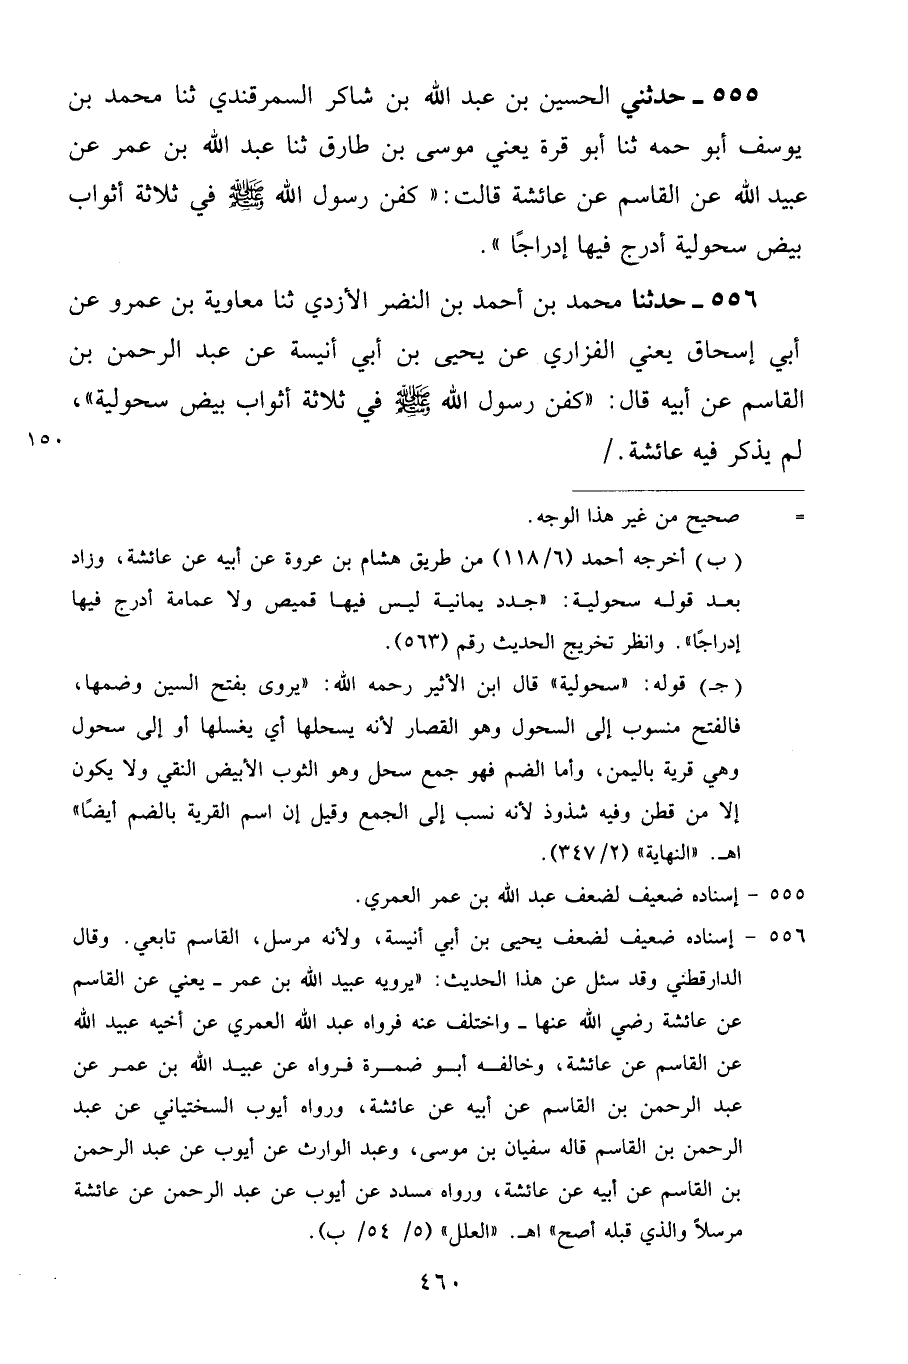 ٥٥٥ ـ حدثني الحسين بن عبد الله بن شاكر السمرقندي ثنا محمد بن
يوسف أبو حمه ثنا أبو قرة يعني موسى بن طارق ثنا عبد الله بن عمر عن
عبيد الله عن القاسم عن عائشة قالت: « كفن رسول الله ﷺ في ثلاثة أثواب
بيض سحولية أدرج فيها إدراجًا ».
٥٥٦ ـ حدثنا محمد بن أحمد بن النضر الأزدي ثنا معاوية بن عمرو عن
أبي إسحاق يعني الفزاري عن يحيى بن أبي أنيسة عن عبد الرحمن بن
القاسم عن أبيه قال: «كفن رسول الله ﷺ في ثلاثة أثواب بيض سحولية»،
لم يذكر فيه عائشة. /
١٥٠
= صحيح من غير هذا الوجه.
(ب) أخرجه أحمد (١١٨/٦) من طريق هشام بن عروة عن أبيه عن عائشة، وزاد
بعد قوله سحولية: «جدد يمانية ليس فيها قميص ولا عمامة أدرج فيها
إدراجًا». وانظر تخريج الحديث رقم (٥٦٣).
(جـ) قوله: «سحولية» قال ابن الأثير رحمه الله: «يروى بفتح السين وضمها،
فالفتح منسوب إلى السحول وهو القصار لأنه يسحلها أي يغسلها أو إلى سحول
وهي قرية باليمن، وأما الضم فهو جمع سحل وهو الثوب الأبيض النقي ولا يكون
إلا من قطن وفيه شذوذ لأنه نسب إلى الجمع وقيل إن اسم القرية بالضم أيضًا»
اهـ. «النهاية» (٣٤٧/٢).
٥٥٥ - إسناده ضعيف لضعف عبد الله بن عمر العمري.
٥٥٦ - إسناده ضعيف لضعف يحيى بن أبي أنيسة، ولأنه مرسل، القاسم تابعي. وقال
الدارقطني وقد سئل عن هذا الحديث: «يرويه عبيد الله بن عمر ـ يعني عن القاسم
عن عائشة رضي الله عنها ـ واختلف عنه فرواه عبد الله العمري عن أخيه عبيد الله
عن القاسم عن عائشة، وخالفه أبو ضمرة فرواه عن عبيد الله بن عمر عن
عبد الرحمن بن القاسم عن أبيه عن عائشة، ورواه أيوب السختياني عن عبد
الرحمن بن القاسم قاله سفيان بن موسى، وعبد الوارث عن أيوب عن عبد الرحمن
بن القاسم عن أبيه عن عائشة، ورواه مسدد عن أيوب عن عبد الرحمن عن عائشة
مرسلاً والذي قبله أصح» اهـ. «العلل» (٥/ ٥٤/ ب).
٤٦٠